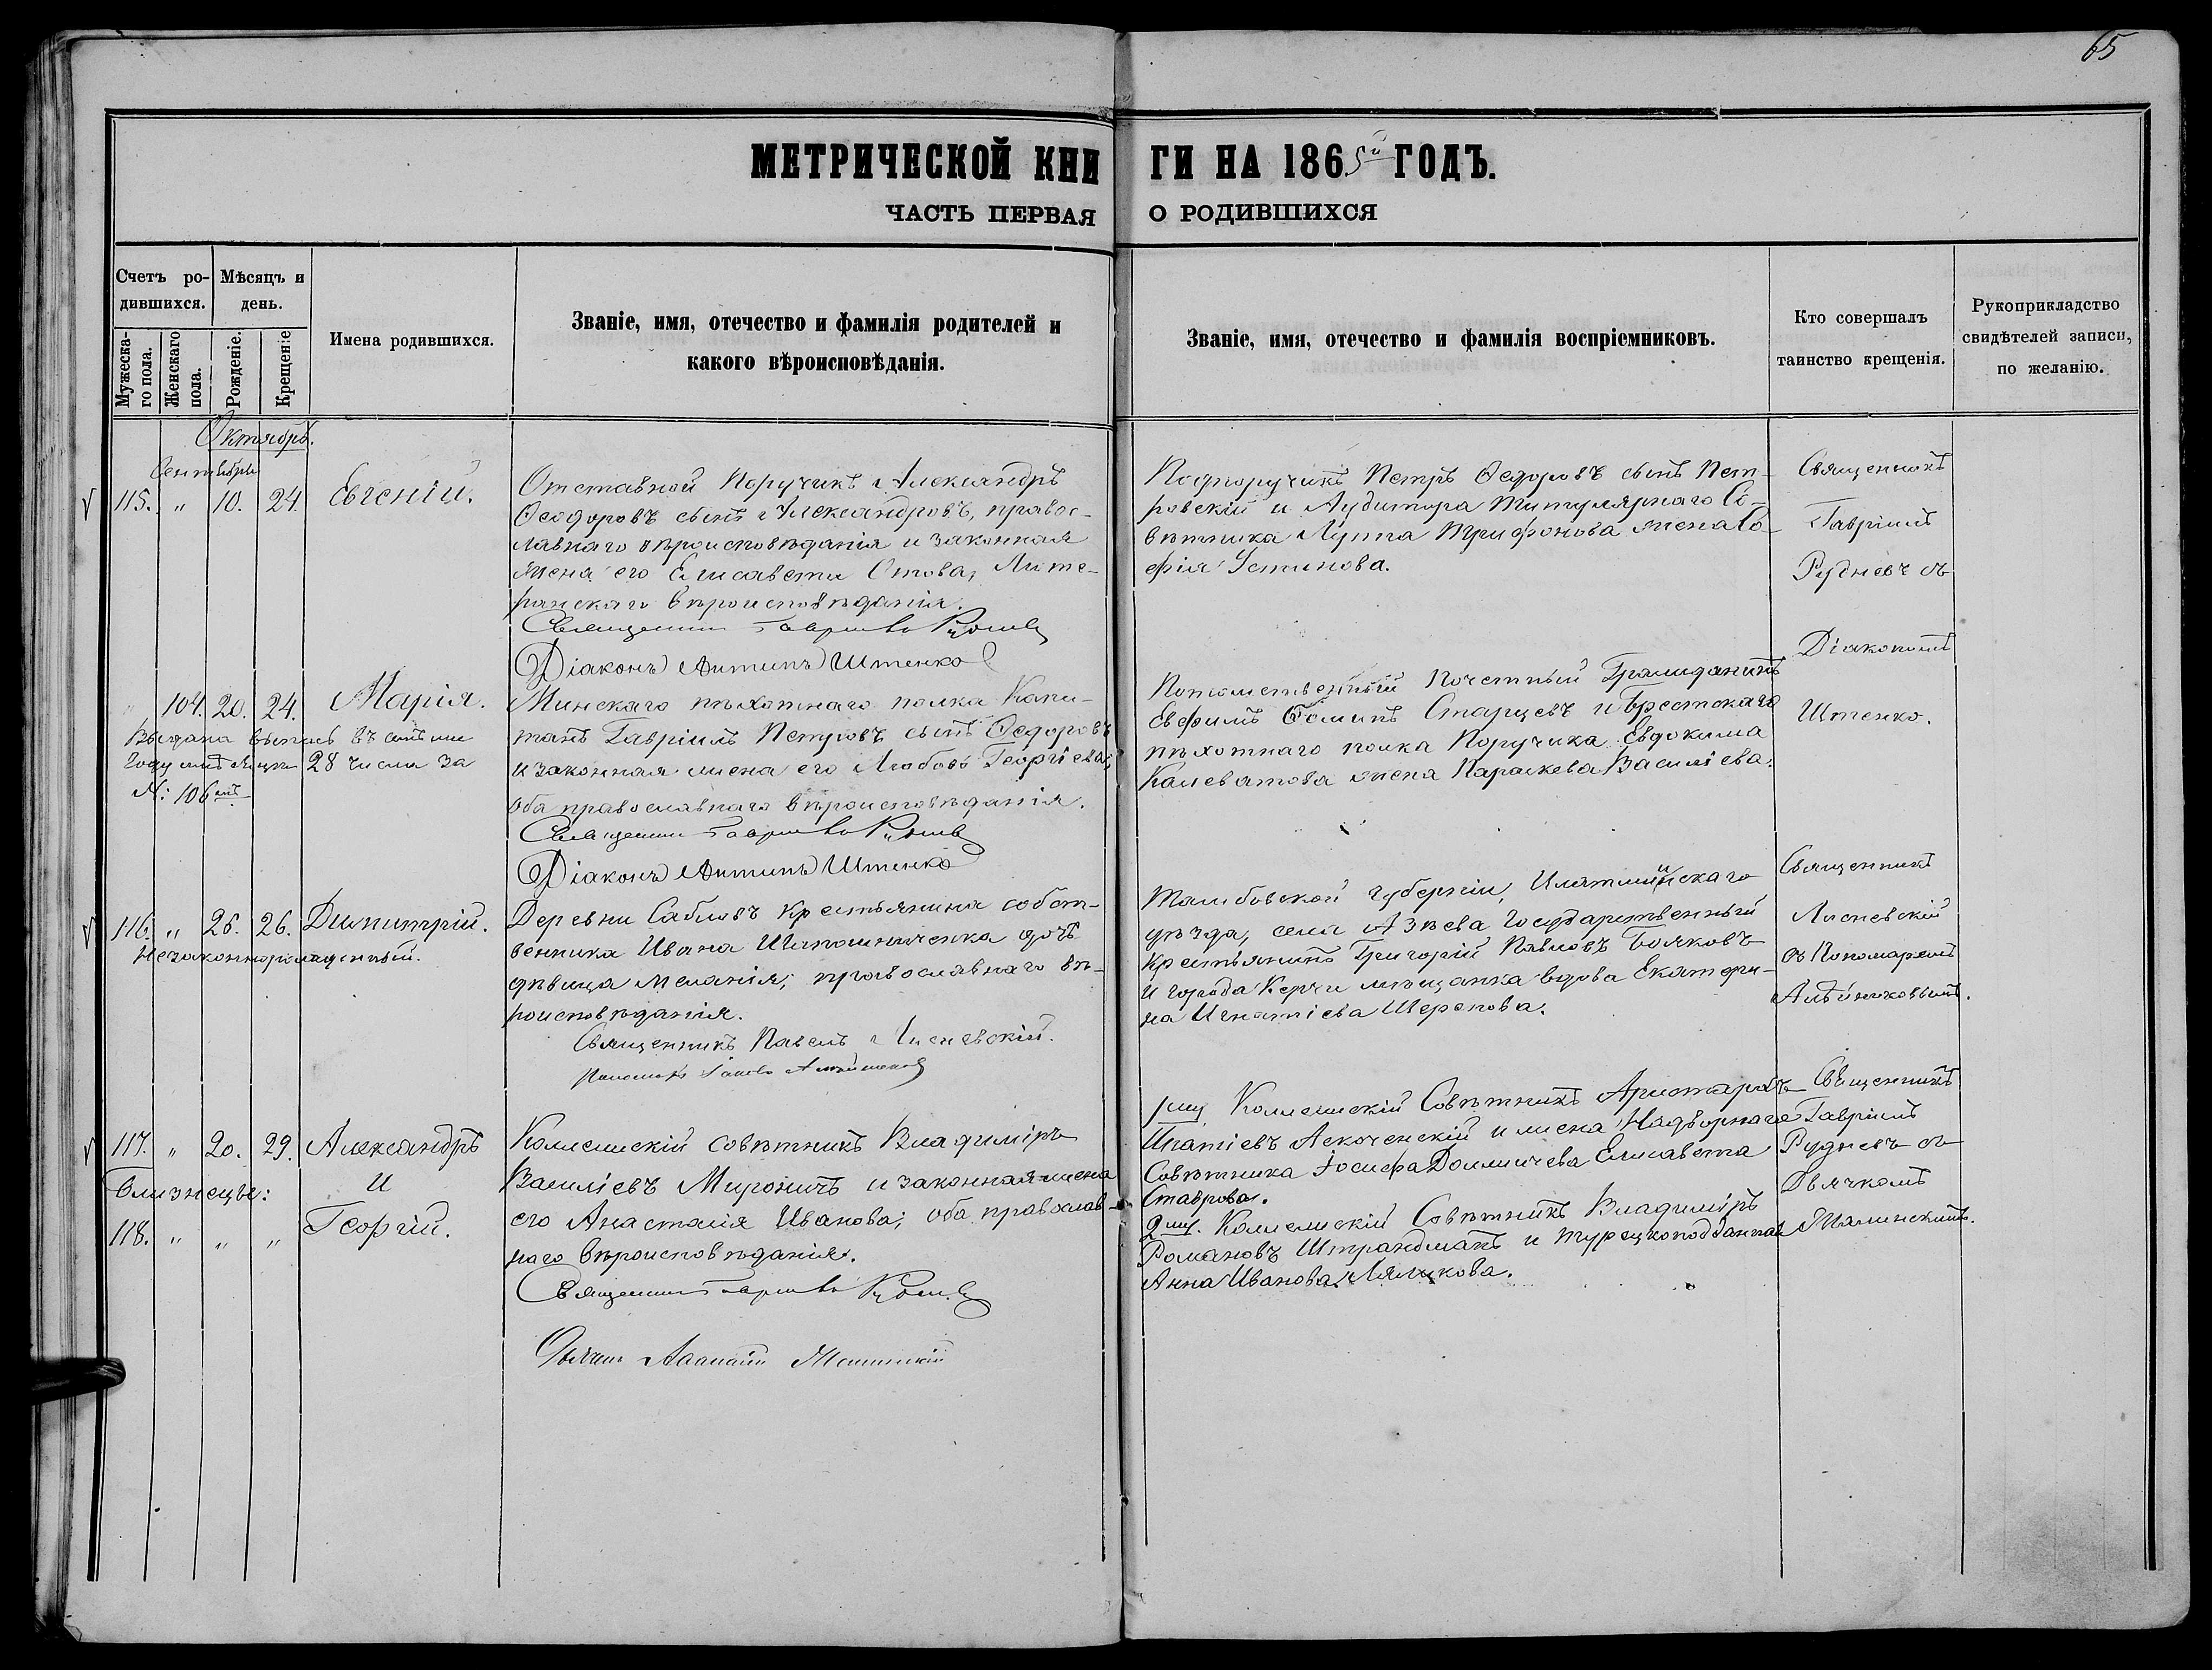 65
МЕТРИЧЕСКОЙ КНИГИ НА 1865й ГОДЪ.
ЧАСТЬ ПЕРВАЯ О РОДИВШИХСЯ
Счетъ ро-
дившихся.
Мужеска-
го пола.
Женскаго
пола.
Мѣсяцъ и
день.
Рожденіе.
Крещеніе
Имена родившихся.
Званіе, имя, отечество и фамилія родителей и
какого вѣроисповѣданія.
Званіе, имя, отечество и фамилія воспріемниковъ.
Кто совершалъ
таинство крещенія.
Рукоприкладство
свидѣтелей записи,
по желанію.
Октябрь.
Сентября
115. " 10. 24. Евгеній.
Отставной Поручикъ Александръ
Ѳеодоровъ сынъ Александровъ, правос-
лавнаго вѣроисповѣданія и законная
жена его Елисавета Отова, Люте-
ранскаго вѣроисповѣданія.
Священникъ Гавріилъ Рудневъ
Діаконъ Антипъ Штенко
Подпоручикъ Петръ Ѳедоровъ сынъ Пет-
ровскій и Аудитора Титулярнаго Со-
вѣтника Луппа Трифонова жена Со-
фія Устинова.
Священникъ
Гавріилъ
Рудневъ съ
Діакономъ
Штенко.
" 104. 20. 24. Марія.
Выдана выпись въ семъ же
году мѣсяца 28 числа за
№: 106мъ
Минскаго пѣхотнаго полка Капи-
танъ Гавріилъ Петровъ сынъ Ѳедоровъ
и законная жена его Любовь Георгіева;
оба православнаго вѣроисповѣданія.
Священникъ Гавріилъ Рудневъ
Діаконъ Антипъ Штенко
Потомственный Почетный Гражданинъ
Евфимъ Ѳоминъ Старцевъ и Брестскаго
пѣхотнаго полка Поручика Евдокима
Калеватова жена Параскева Василіева.
116. " 26. 26. Димитрій.
Незаконнорожденный.
Деревни Сабловъ крестьянина собст-
венника Ивана Шапошниченка дочь
дѣвица Меланія; православнаго вѣ-
роисповѣданія.
Священникъ Павелъ Лисневскій.
Тамбовской губерніи, Илатминскаго
уѣзда, села Азѣева Государственный
крестьянинъ Григорій Павловъ Бояковъ
и города Керчи мѣщанка вдова Екатери-
на Игнатіева Шерепова.
Священникъ
Лисневскій
съ Пономаремъ
117. " 20. 29. Александръ
Близнецы: и
118. " " " Георгій.
Коллежскій совѣтникъ Владиміръ
Василіевъ Мироничъ и законная жена
его Анастасія Иванова; оба православ-
наго вѣроисповѣданія.
Священникъ Гавріилъ Рудневъ
1му Коллежскій Совѣтникъ Аристархъ
Ипатіевъ Аскоченскій и жена Надворнаго
Совѣтника Іосифа Доммичева Елисавета
Ставрова.
2му. Коллежскій Совѣтникъ Владиміръ
Романовъ Штрандманъ и турецкоподданная
Анна Иванова
Священникъ
Гавріилъ
Рудневъ съ
Дьячкомъ